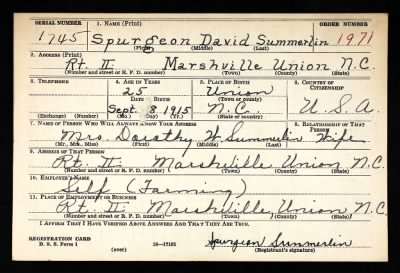 SERIAL NUMBER 1. NAME (Print) ORDER NUMBER
1745 Spurgeon David Summerlin 1971
(First) (Middle) (Last)
2. ADDRESS (Print)
Rt. II Marshville Union N.C.
(Number and street or R. F. D. number) (Town) (County) (State)
3. TELEPHONE 4. AGE IN YEARS 5. PLACE OF BIRTH 6. COUNTRY OF CITIZENSHIP
25 Union
(Town or county)
DATE OF BIRTH
Sept. 8 1915 N.C. U.S.A
(Exchange) (Number) (Mo.) (Day) (Yr.) (State or country)
7. NAME OF PERSON WHO WILL ALWAYS KNOW YOUR ADDRESS 8. RELATIONSHIP OF THAT PERSON
Mrs. Dorathy W. Summerlin Wife
(Mr., Mrs., Miss) (First) (Middle) (Last)
9. ADDRESS OF THAT PERSON
Rt. II. Marshville Union N.C.
(Number and street or R. F. D. number) (Town) (County) (State)
10. EMPLOYER'S NAME
Self (Farming)
11. PLACE OF EMPLOYMENT OR BUSINESS
Rt. II. Marshville, Union N.C.
(Number and street or R. F. D. number) (Town) (County) (State)
I AFFIRM THAT I HAVE VERIFIED ABOVE ANSWERS AND THAT THEY ARE TRUE.
REGISTRATION CARD
D. S. S. Form 1 (over) 16-17105 Spurgeon Summerlin
(Registrant's signature)